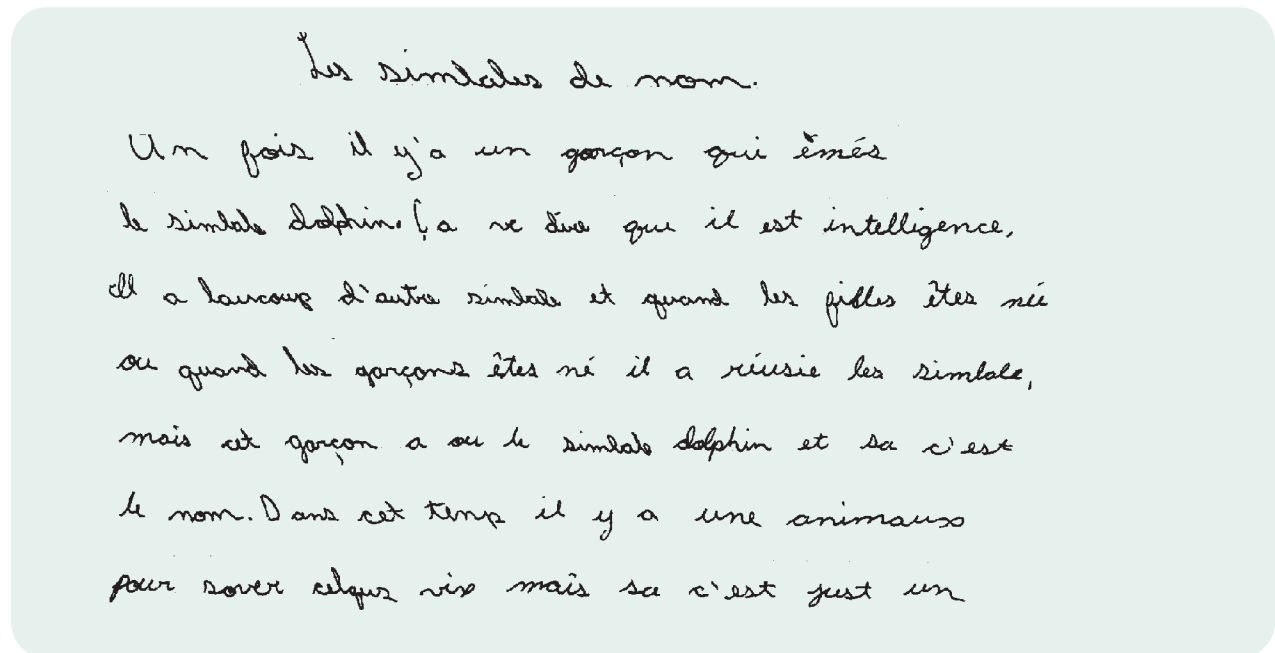 Les simbales de nom.
Un fois il y'a un garçon qui êmés
le simbale dolphin. Ça ve dire que il est intelligence,
Il a baucoup d'autre simbale et quand les filles êtes née
ou quand les garçons êtes né il a réusie les simbale,
mais cet garçon a ou le simbale dolphin et sa c'est
le nom. Dans cet temp il y a une animaux
pour sover celqus vix mais sa c'est just un